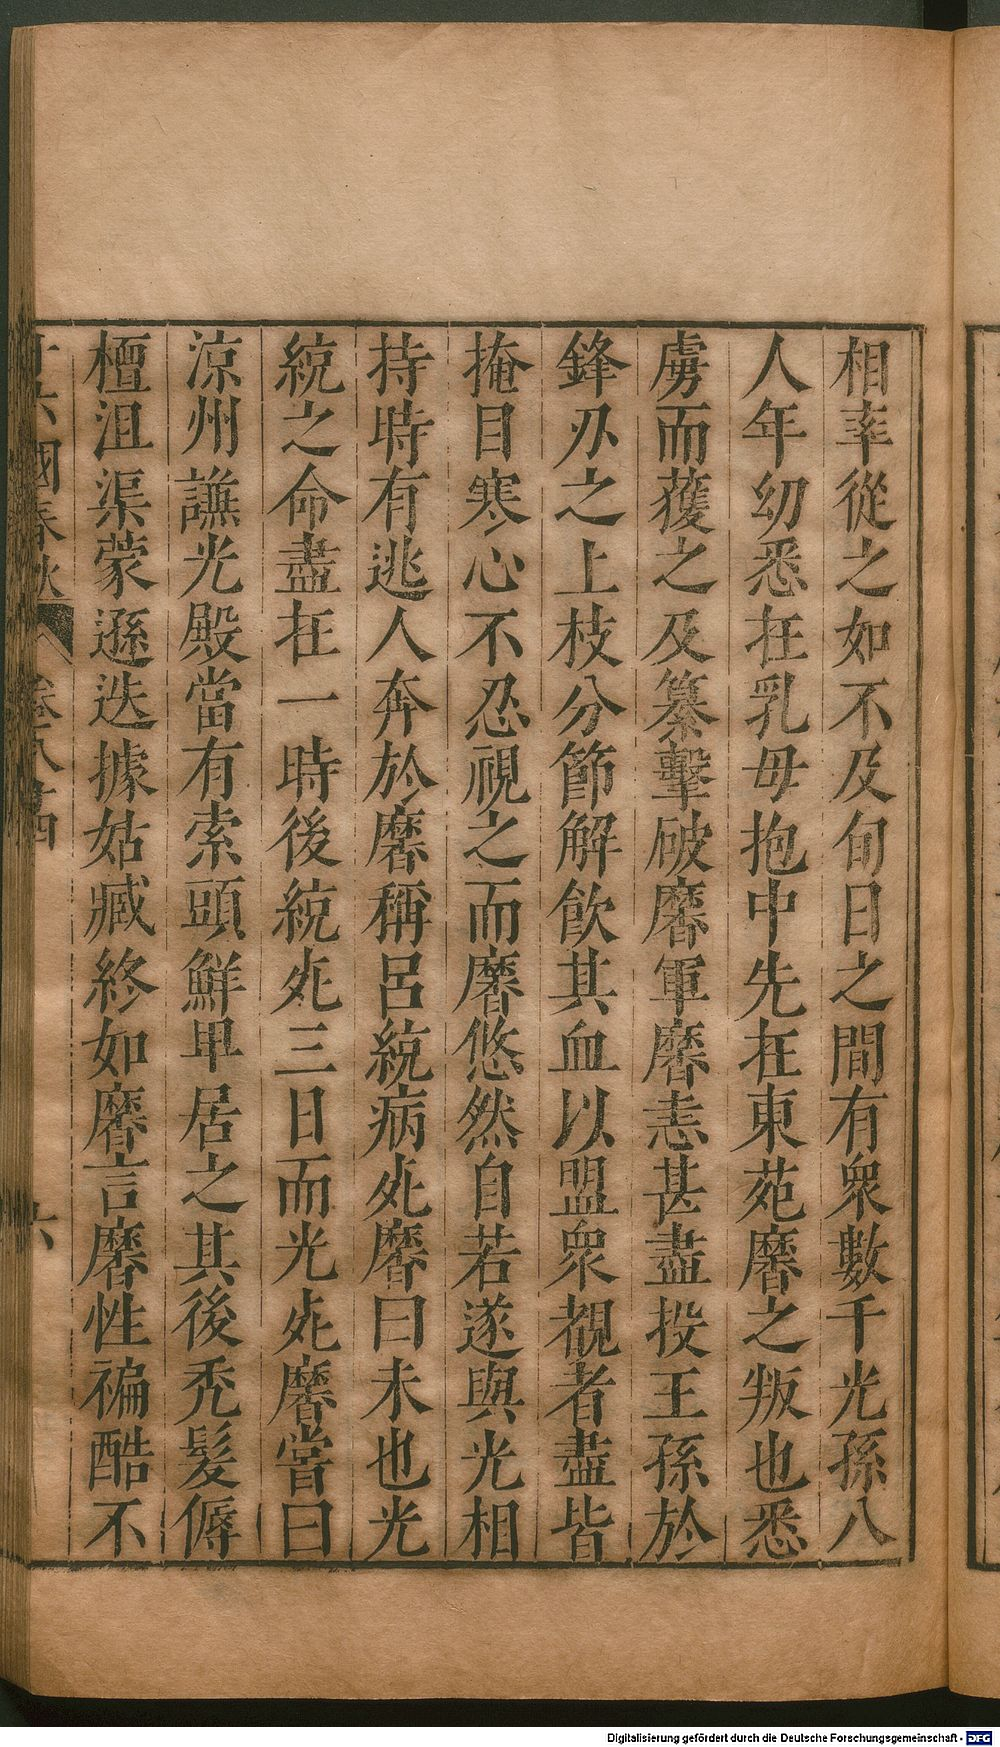 相率從之如不及旬日之間有衆數千光孫八
人年幼悉在乳母抱中先在東苑䴢之叛也悉
虜而獲之及纂擊破䴢軍䴢恚甚盡投王孫於
鋒刃之上枝分節解飲其血以盟衆覩者盡皆
掩目寒心不忍視之而䴢悠然自若遂與光相
持時有逃人奔於䴢稱呂統病死䴢曰未也光
統之命盡在一時後統死三日而光死䴢嘗曰
涼州謙光殿當有索頭鮮卑居之其後禿髮傉
檀沮渠蒙遜迭據姑臧終如䴢言䴢性褊酷不
十六國春秋 卷八十四 六
Digitalisierung gefördert durch die Deutsche Forschungsgemeinschaft - DFG